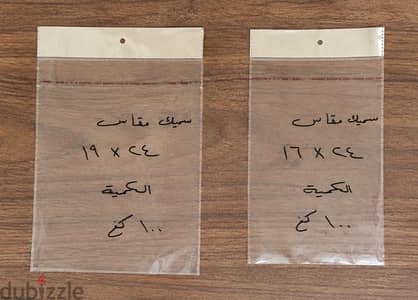 سميك مقاس
٢٤ × ١٩
الكمية
١٠٠ كغ
سميك مقاس
٢٤ × ١٦
الكمية
١٠٠ كغ
dubizzle